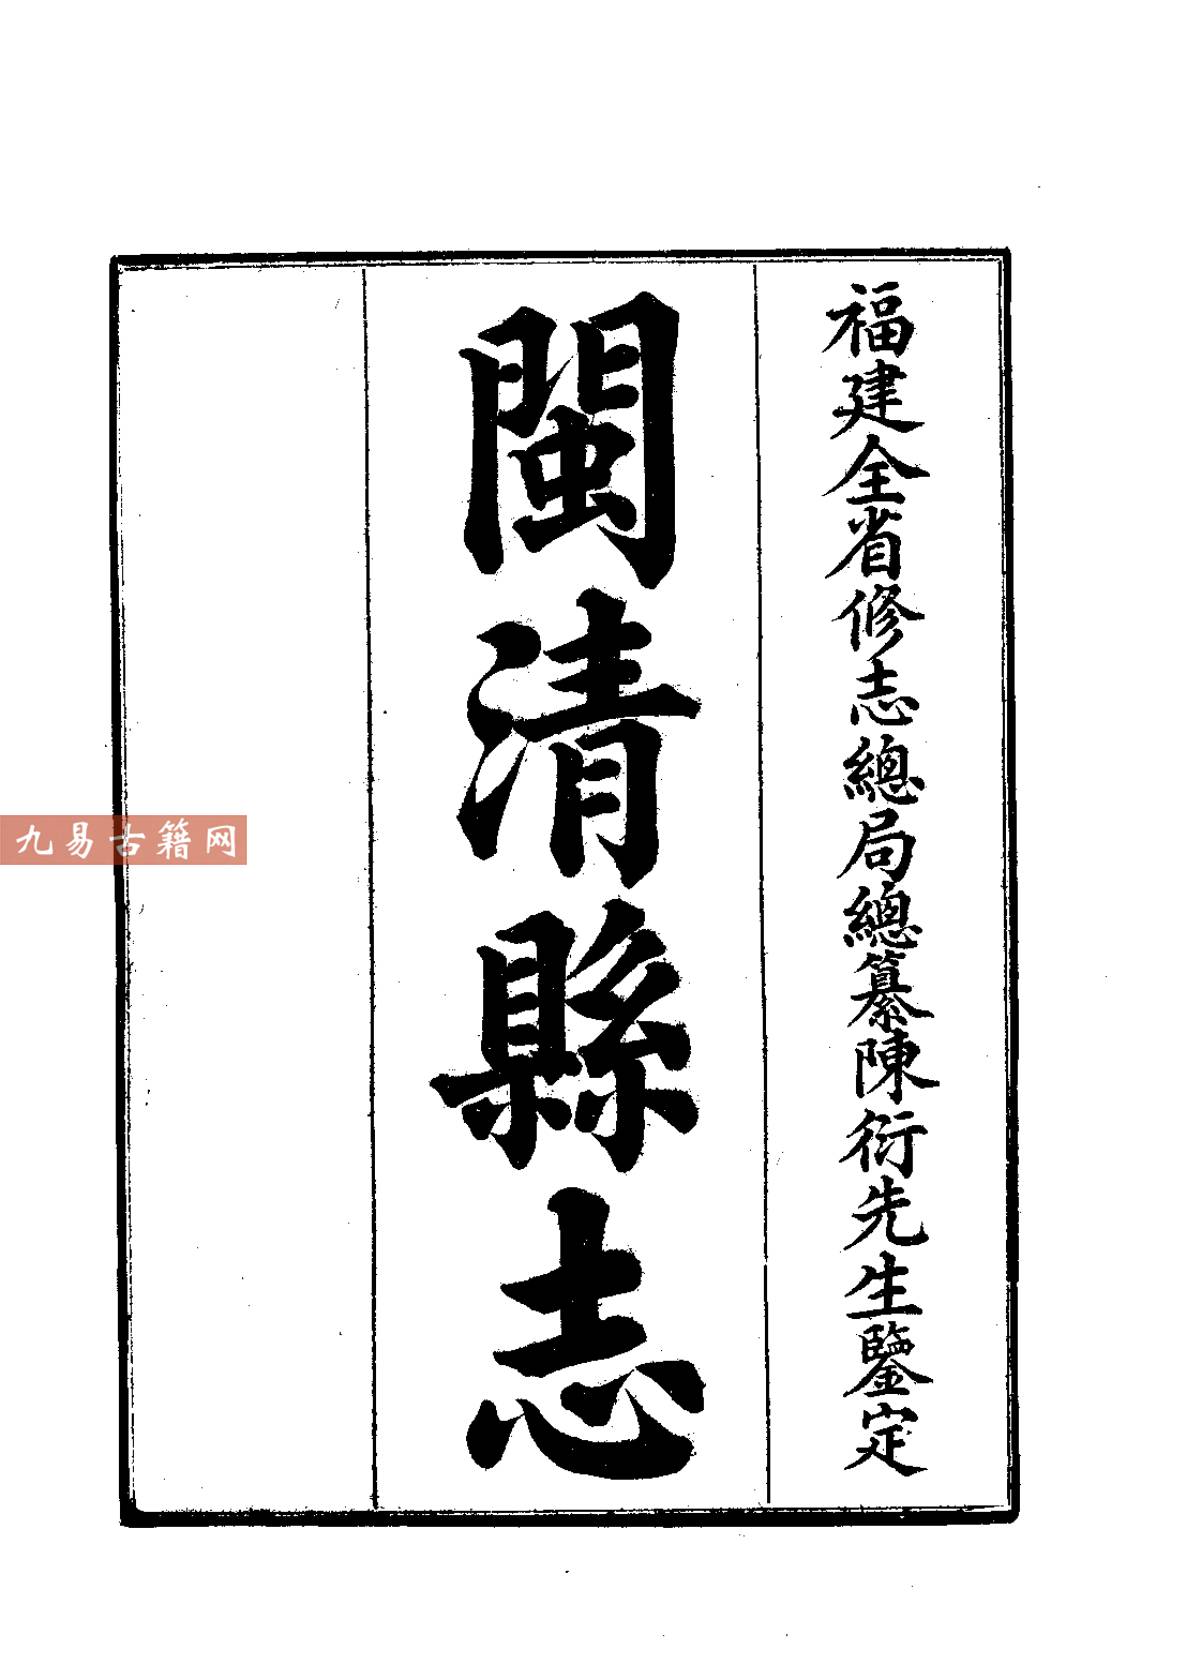 福建全省修志總局總纂陳衍先生鑒定
閩清縣志
九易古籍网